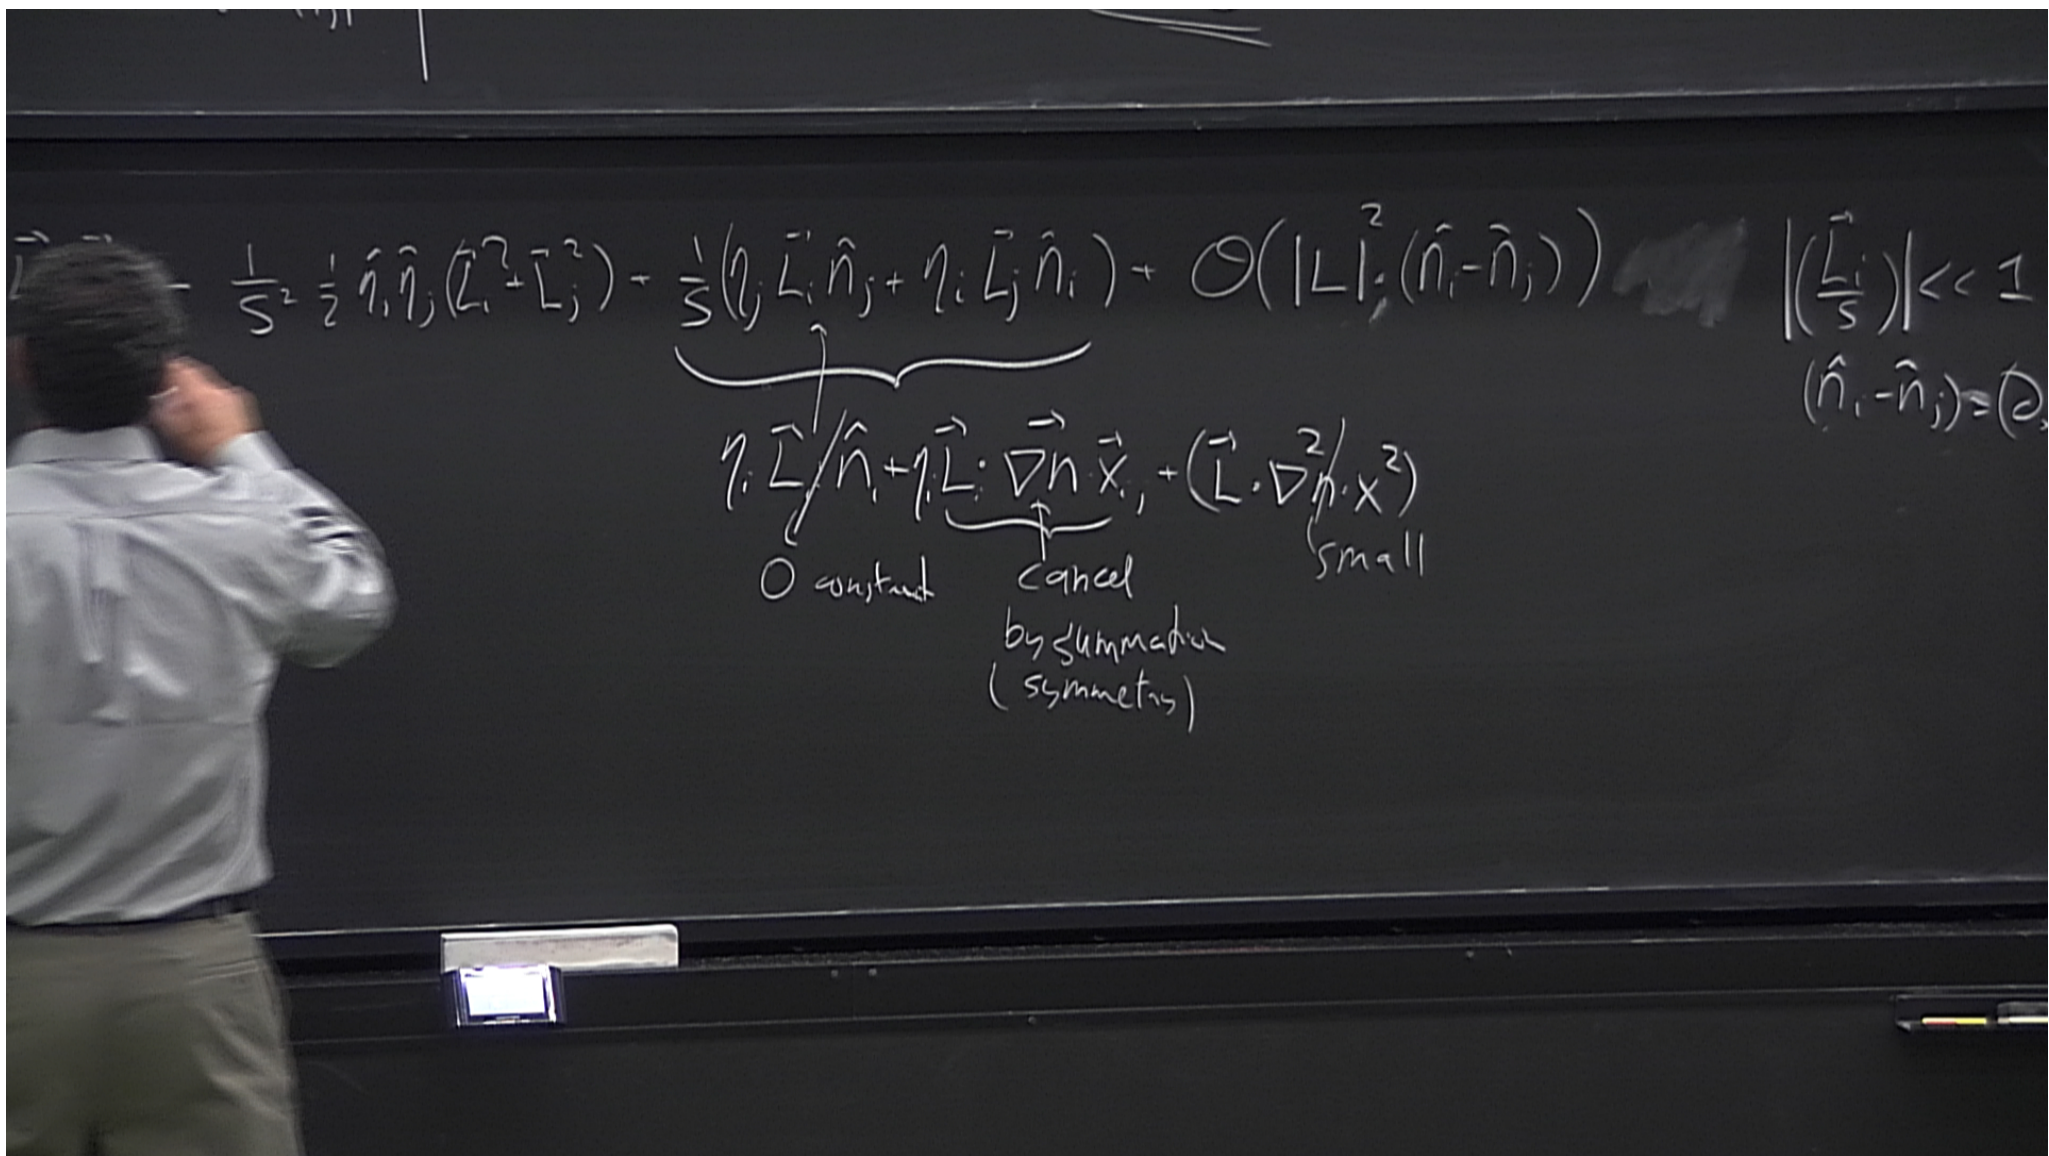 - 1/S² 1/2 η̂ᵢ η̂ⱼ (L⃗ᵢ² + L⃗ⱼ²) + 1/S (ηⱼ L⃗ᵢ n̂ⱼ + ηᵢ L⃗ⱼ n̂ᵢ) + O(|L|², (n̂ᵢ - n̂ⱼ)) |(L⃗ᵢ/S)| << 1
(n̂ᵢ - n̂ⱼ) =
ηᵢ L⃗ᵢ n̂ᵢ + ηᵢ L⃗ᵢ ∇⃗n · x⃗ᵢⱼ + (L⃗ · ∇²n · x²)
0 constant cancel small
by summation
(symmetry)